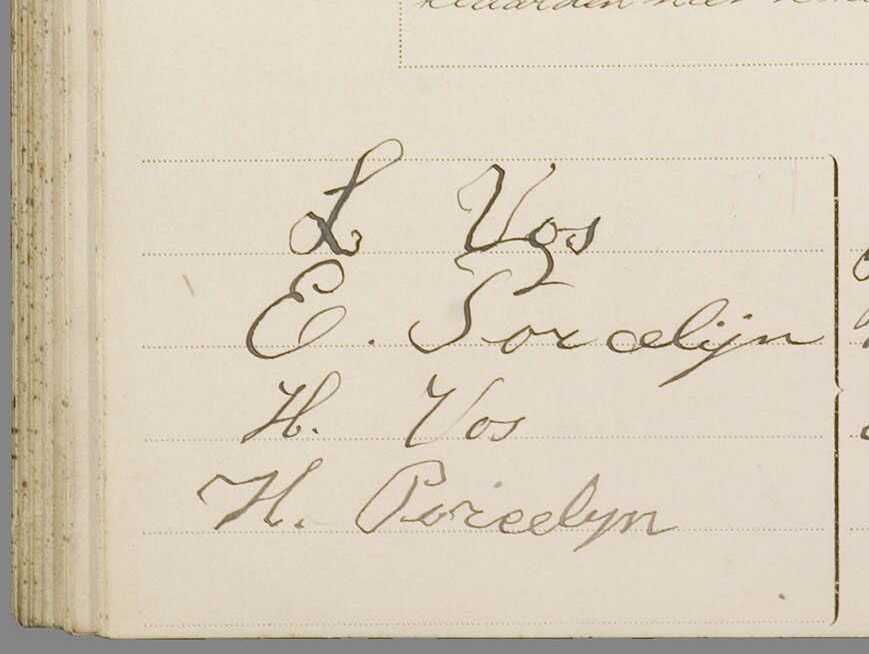 L Vos
E. Porcelijn
H. Vos
H. Porcelyn